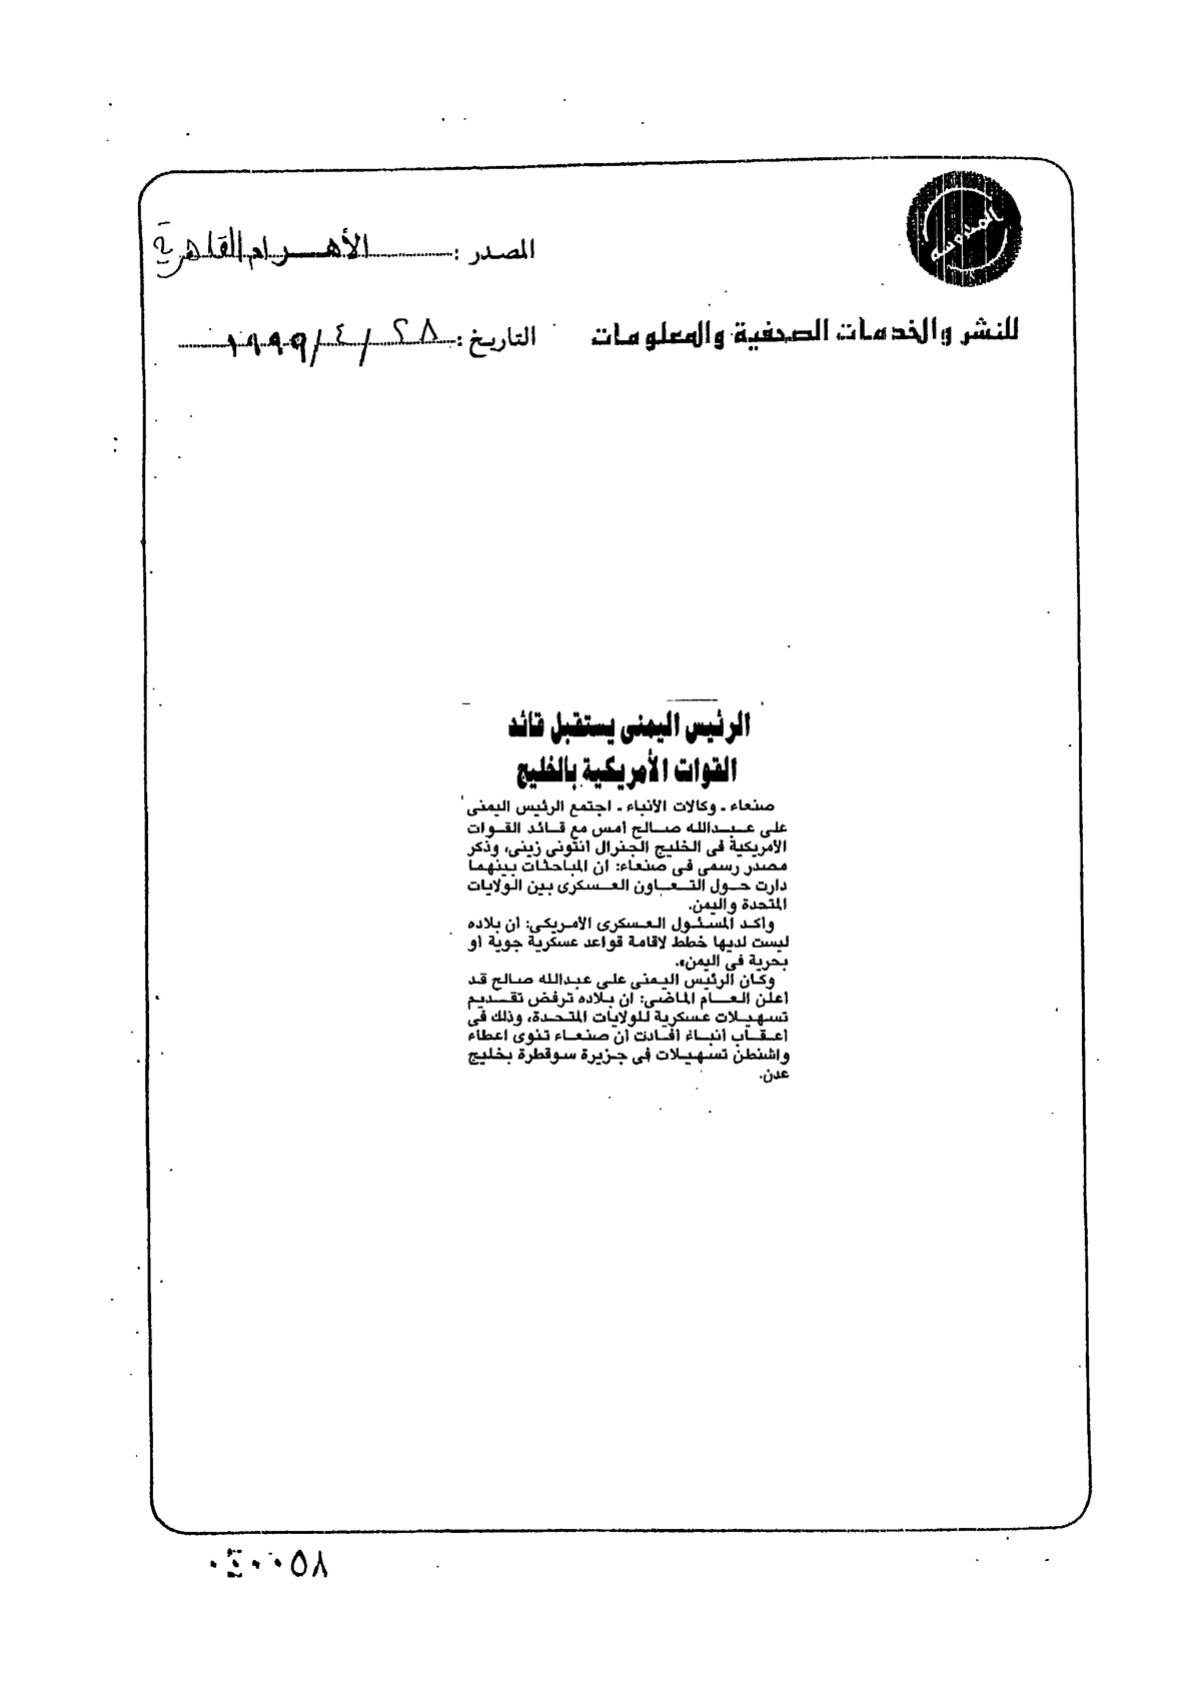 المدونة
المصدر : الأهرام القاهرية
للنشر والخدمات الصحفية والمعلومات
التاريخ : ٢٨ / ٤ / ١٩٩٩
الرئيس اليمنى يستقبل قائد
القوات الأمريكية بالخليج
صنعاء ـ وكالات الأنباء ـ اجتمع الرئيس اليمنى
على عبدالله صالح أمس مع قائد القوات
الأمريكية فى الخليج الجنرال انتونى زينى، وذكر
مصدر رسمى فى صنعاء: ان المباحثات بينهما
دارت حول التعاون العسكرى بين الولايات
المتحدة واليمن.
واكد المسئول العسكرى الأمريكى: ان بلاده
ليست لديها خطط لاقامة قواعد عسكرية جوية او
بحرية فى اليمن».
وكان الرئيس اليمنى على عبدالله صالح قد
اعلن العام الماضى: ان بلاده ترفض تقديم
تسهيلات عسكرية للولايات المتحدة، وذلك فى
أعقاب أنباء أفادت أن صنعاء تنوى اعطاء
واشنطن تسهيلات فى جزيرة سوقطرة بخليج
عدن.
٠٤٠٠٥٨